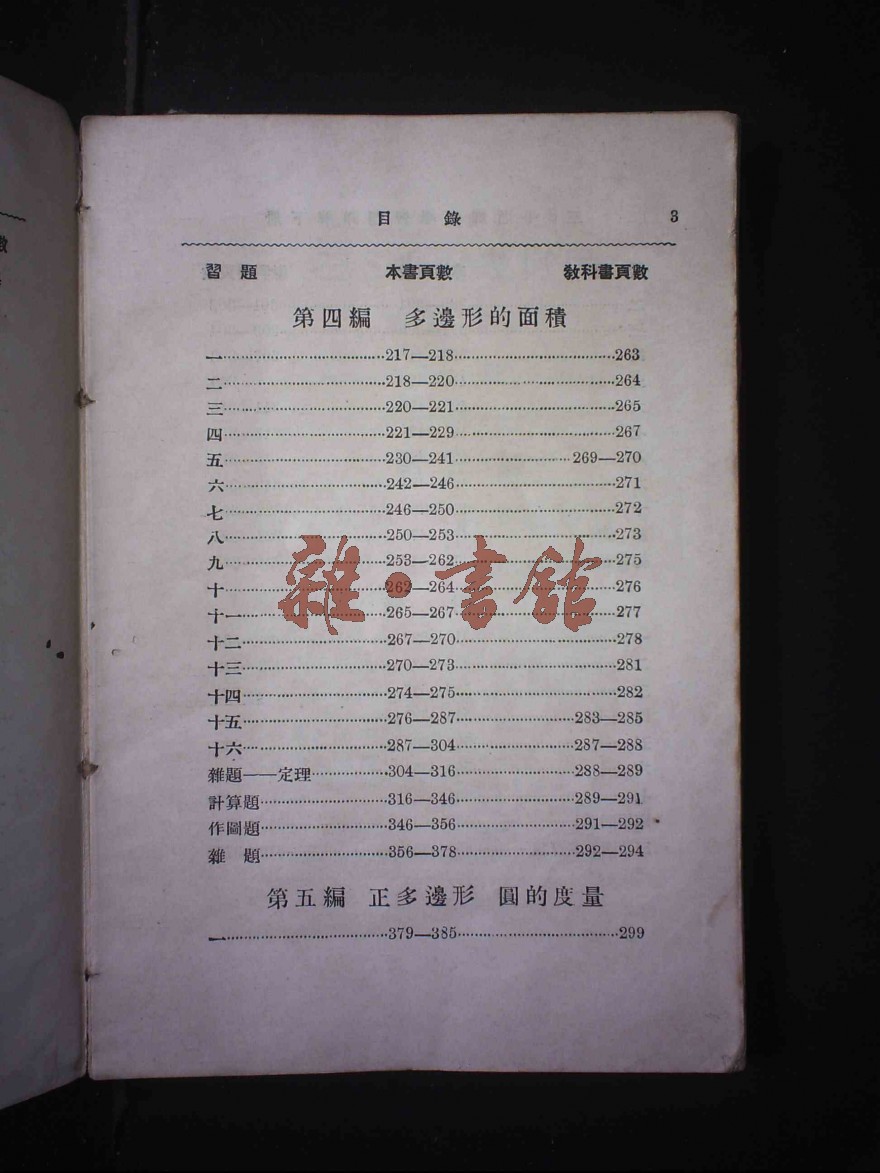 目錄 3
習題 本書頁數 敎科書頁數
第四編 多邊形的面積
一 217—218 263
二 218—220 264
三 220—221 265
四 221—229 267
五 230—241 269—270
六 242—246 271
七 246—250 272
八 250—253 273
九 253—262 275
十 262—264 276
十一 265—267 277
十二 267—270 278
十三 270—273 281
十四 274—275 282
十五 276—287 283—285
十六 287—304 287—288
雜題——定理 304—316 288—289
計算題 316—346 289—291
作圖題 346—356 291—292
雜題 356—378 292—294
第五編 正多邊形 圓的度量
一 379—385 299
雜·書館